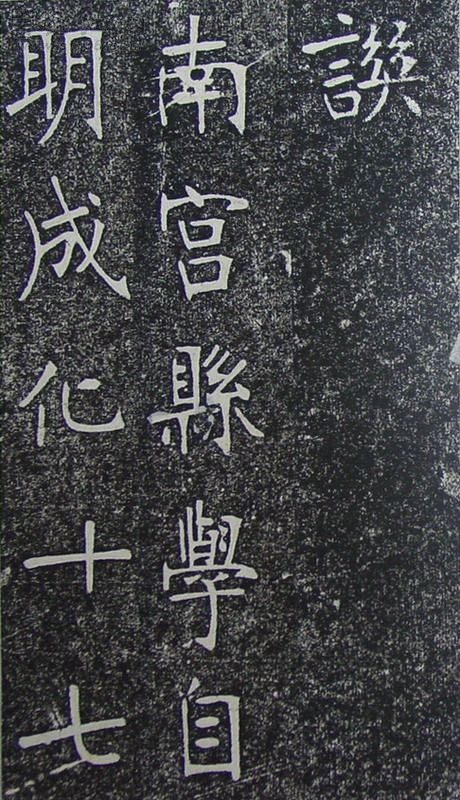 譔
南宮縣學自
明成化十七